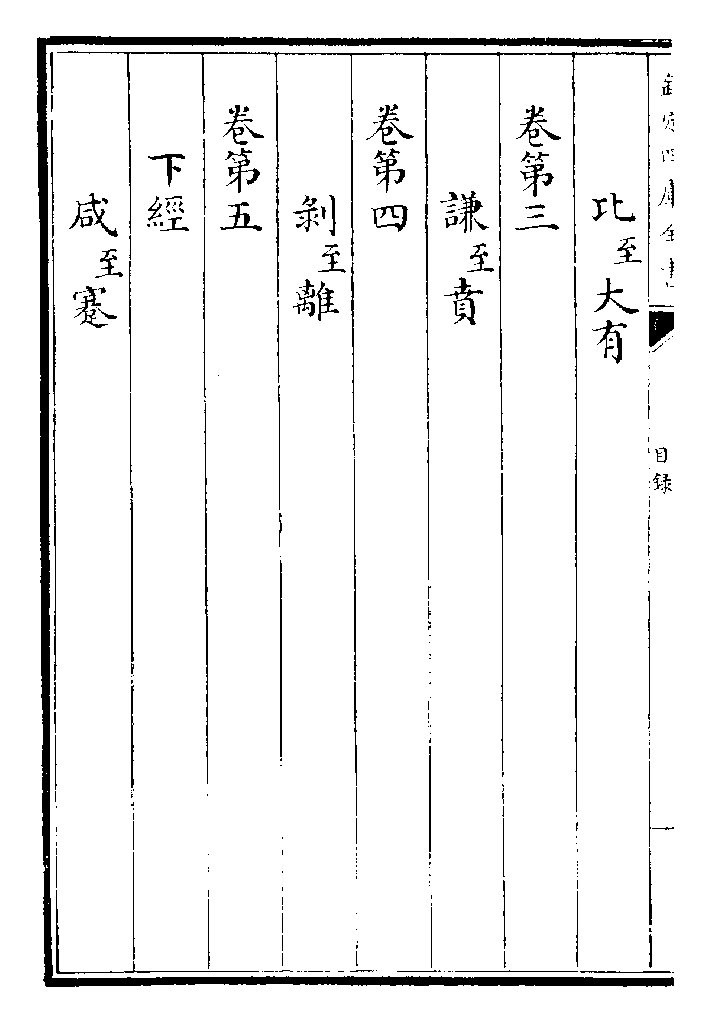 欽定四庫全書
目録
比至大有
卷第三
謙至賁
卷第四
剝至離
卷第五
下經
咸至蹇